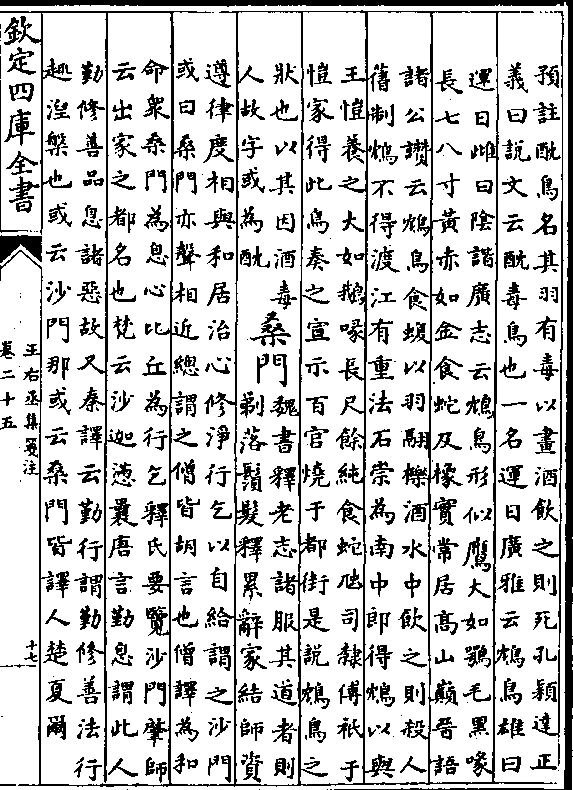 預註酖鳥名其羽有毒以畫酒飲之則死孔穎達正
義曰說文云酖毒鳥也一名運日廣雅云鴆鳥雄曰
運日雌曰陰諧廣志云鴆鳥形似鷹大如鶚毛黑喙
長七八寸黃赤如金食蛇及橡實常居高山巔晉語
諸公讚云鴆鳥食蝮以羽翮櫟酒水中飲之則殺人
舊制鴆不得渡江有重法石崇為南中郎得鴆以與
王愷養之大如鵝喙長尺餘純食蛇虺司隸傅祗于
愷家得此鳥奏之宣示百官燒于都街是說鴆鳥之
狀也以其因酒毒
人故字或為酖
桑門
魏書釋老志諸服其道者則
剃落鬚髮釋累辭家結師資
遵律度相與和居治心修淨行乞以自給謂之沙門
或曰桑門亦聲相近總謂之僧皆胡言也僧譯為和
命衆桑門為息心比丘為行乞釋氏要覽沙門肇師
云出家之都名也梵云沙迦懣曩唐言勤息謂此人
勤修善品息諸惡故又秦譯云勤行謂勤修善法行
趣涅槃也或云沙門那或云桑門皆譯人楚夏爾
欽定四庫全書
王右丞集箋注
卷二十五
十七